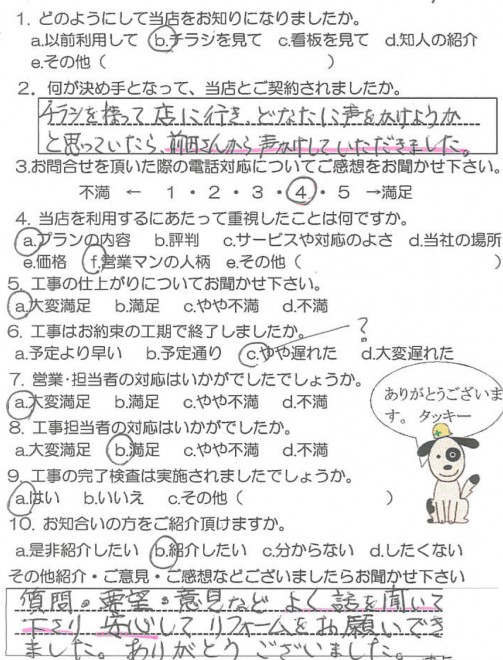 1. どのようにして当店をお知りになりましたか。
a.以前利用して b.チラシを見て c.看板を見て d.知人の紹介
e.その他( )
2. 何が決め手となって、当店とご契約されましたか。
チラシを持って店に行き、どなたに声をかけようか
と思っていたら、前田さんから声かけしていただきました。
3.お問合せを頂いた際の電話対応についてご感想をお聞かせ下さい。
不満 ← 1・2・3・4・5 →満足
4. 当店を利用するにあたって重視したことは何ですか。
a.プランの内容 b.評判 c.サービスや対応のよさ d.当社の場所
e.価格 f.営業マンの人柄 e.その他( )
5. 工事の仕上がりについてお聞かせ下さい。
a.大変満足 b.満足 c.やや不満 d.不満
6. 工事はお約束の工期で終了しましたか。 ?
a.予定より早い b.予定通り c.やや遅れた d.大変遅れた
7. 営業・担当者の対応はいかがでしたでしょうか。
a.大変満足 b.満足 c.やや不満 d.不満
ありがとうございま
す。 タッキー
8. 工事担当者の対応はいかがでしたか。
a.大変満足 b.満足 c.やや不満 d.不満
9. 工事の完了検査は実施されましたでしょうか。
a.はい b.いいえ c.その他( )
10. お知合いの方をご紹介頂けますか。
a.是非紹介したい b.紹介したい c.分からない d.したくない
その他紹介・ご意見・ご感想などございましたらお聞かせ下さい
質問・要望・意見など よく話を聞いて
下さり 安心して リフォームをお願いでき
ました。ありがとうございました。